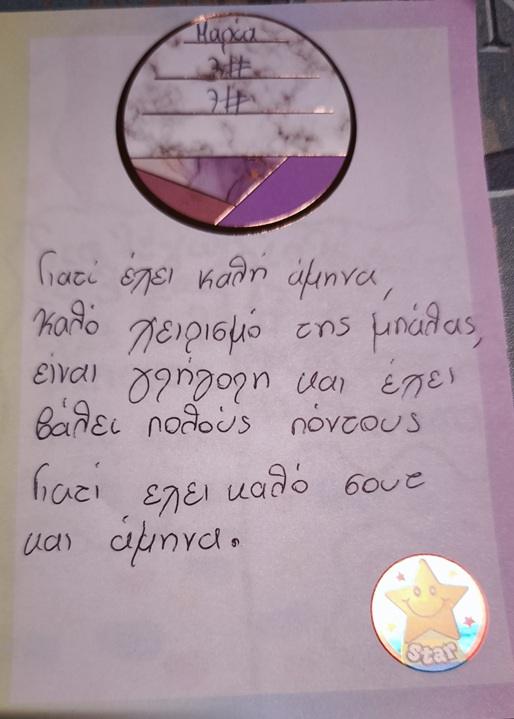 Μαρία
3#
7#
Γιατί έχει καλή άμηνα,
καλό χειρισμό της μπάλας,
είναι γρήγορη και έχει
βάλει πολούς πόντους
Γιατί εχει καλό σουτ
και άμηνα.
Star